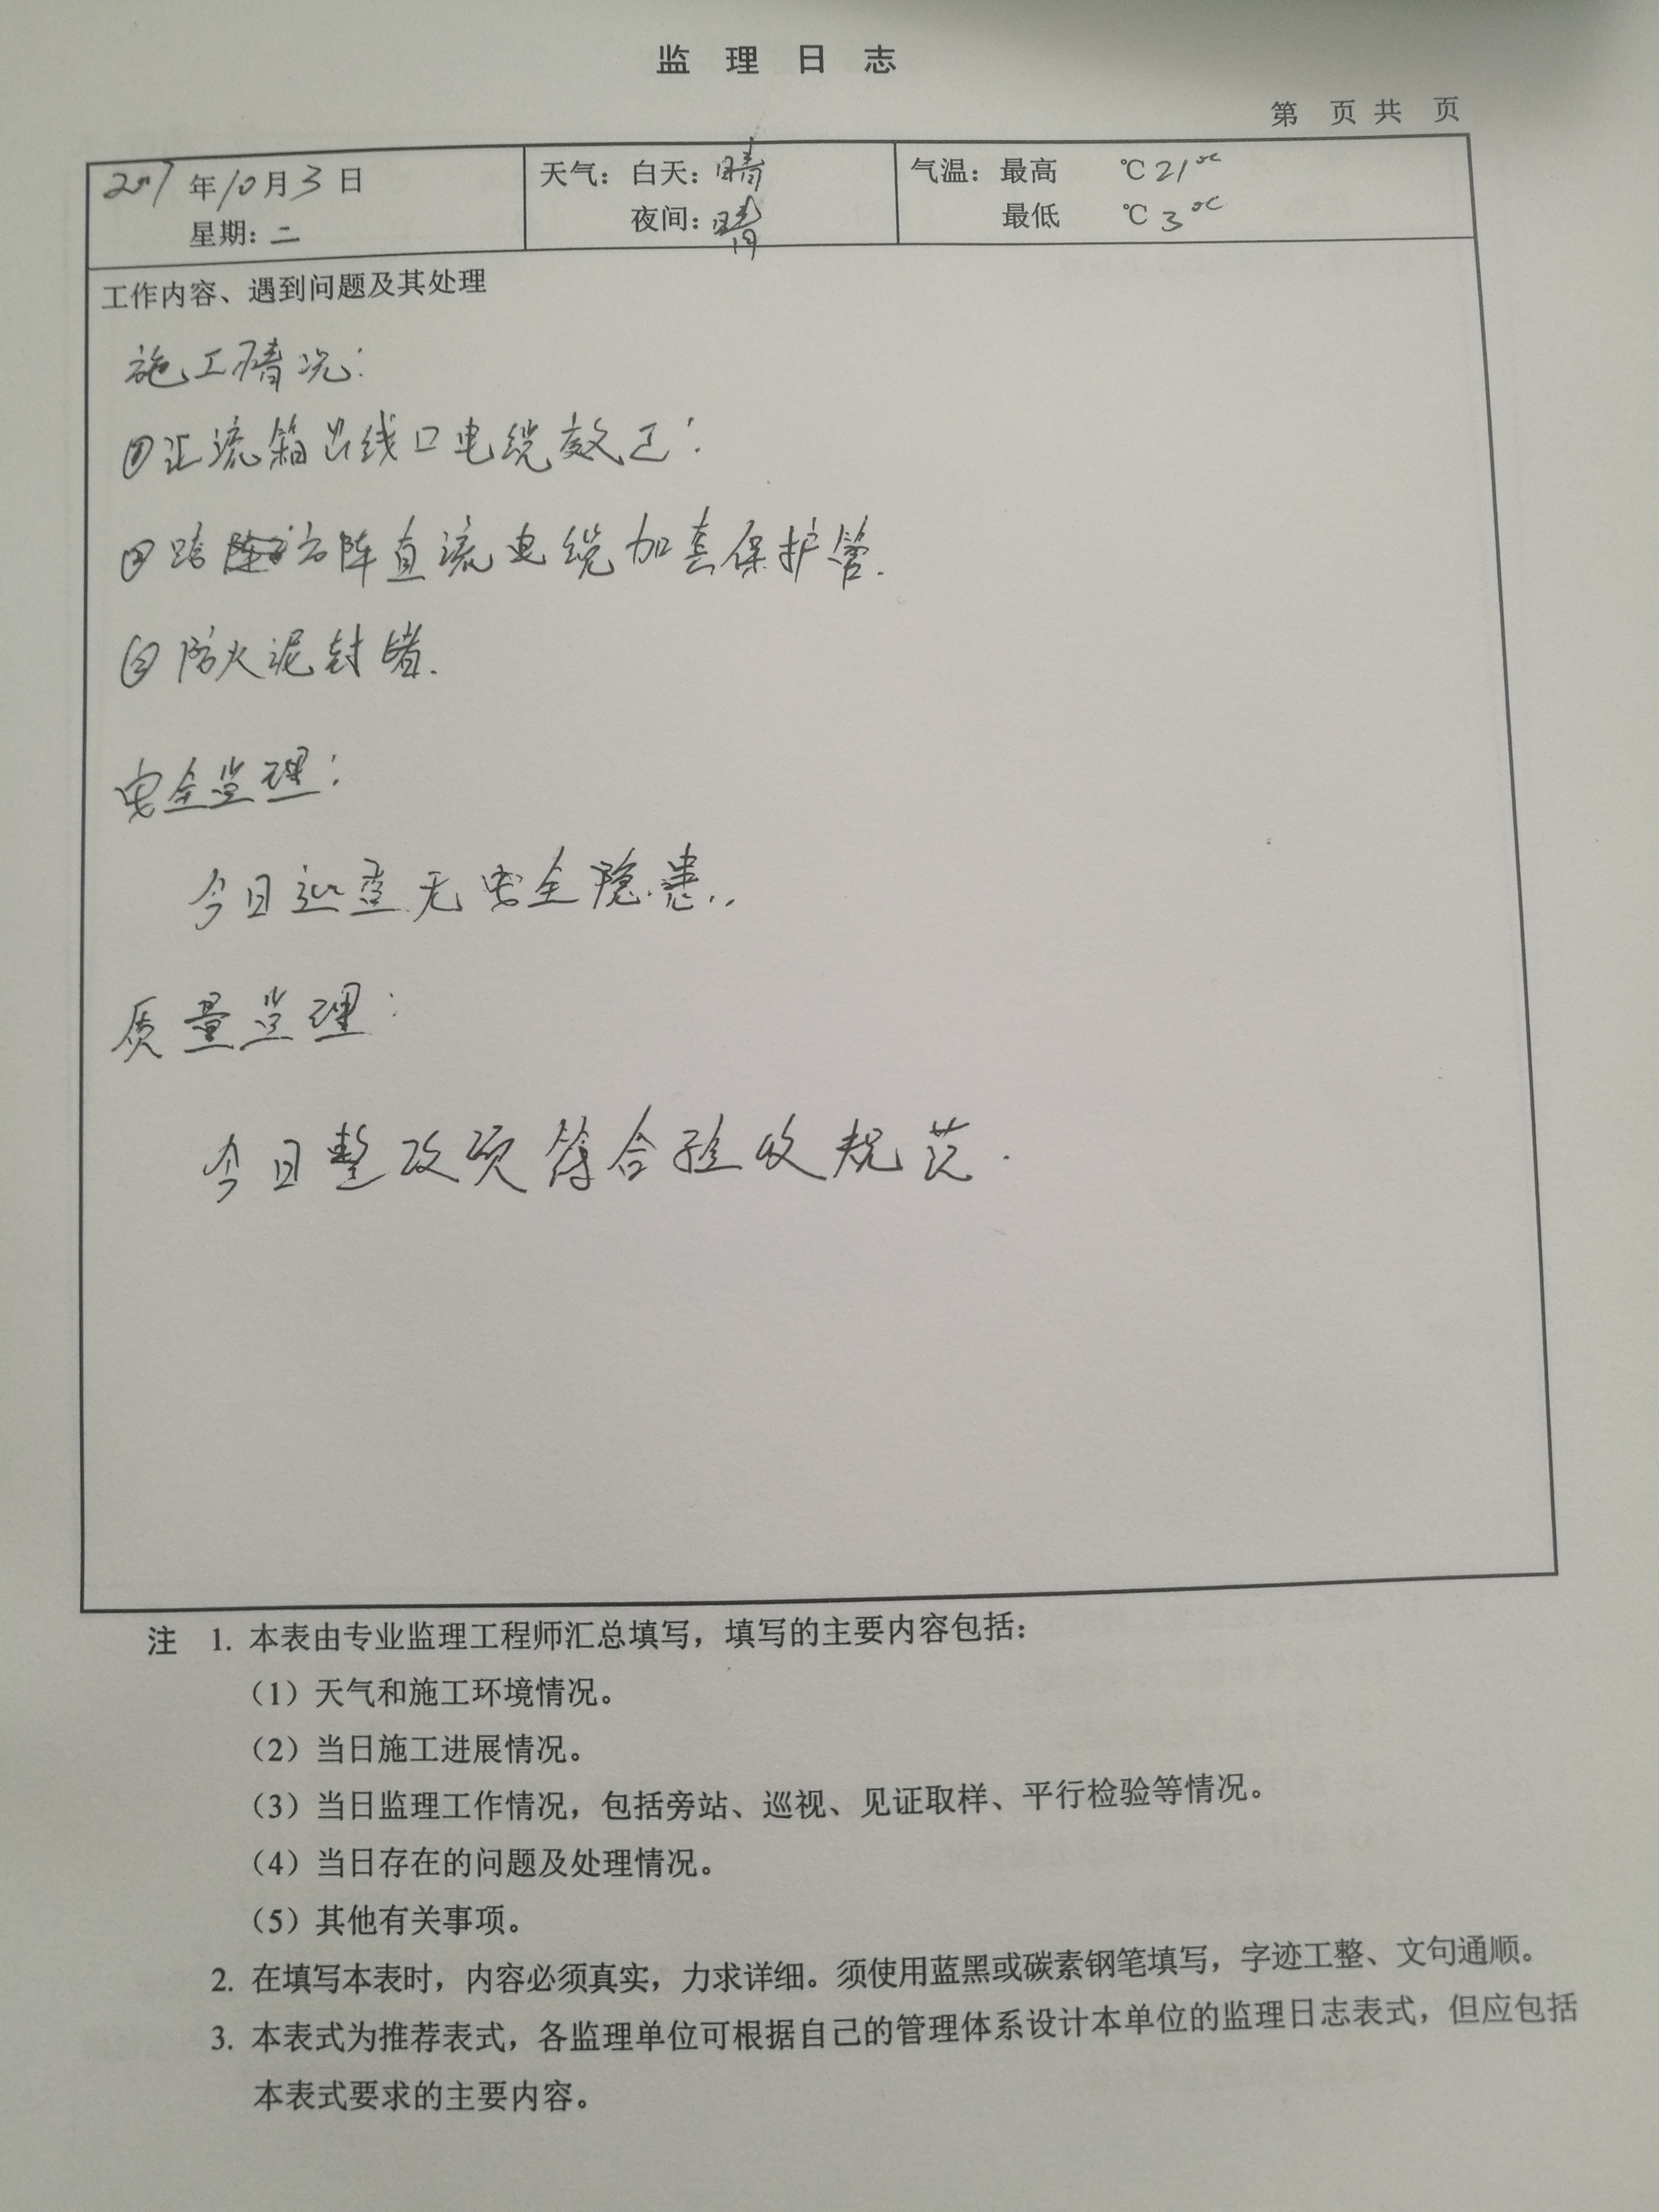 监理日志
第 页 共 页
2017年10月3日
星期：二
天气：白天：晴
夜间：晴
气温：最高 ℃ 21℃
最低 ℃ 3℃
工作内容、遇到问题及其处理
施工情况：
①汇流箱出线口电缆整正：
②跨方阵直流电缆加套保护管.
③防火泥封堵.
安全监理：
今日巡查无安全隐患..
质量监理：
今日整改项符合验收规范.
注 1. 本表由专业监理工程师汇总填写，填写的主要内容包括：
（1）天气和施工环境情况。
（2）当日施工进展情况。
（3）当日监理工作情况，包括旁站、巡视、见证取样、平行检验等情况。
（4）当日存在的问题及处理情况。
（5）其他有关事项。
2. 在填写本表时，内容必须真实，力求详细。须使用蓝黑或碳素钢笔填写，字迹工整、文句通顺。
3. 本表式为推荐表式，各监理单位可根据自己的管理体系设计本单位的监理日志表式，但应包括
本表式要求的主要内容。